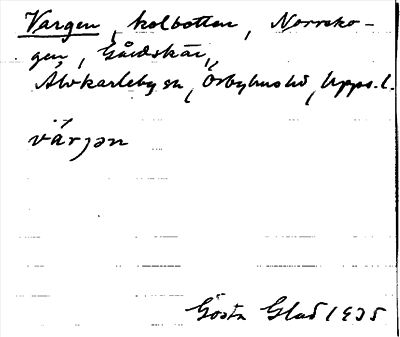 Vargen, kolbotten, Norrsko-
gen, Gårdskär,
Älvkarleby sn, Örbyhus hd, Upps. l.
värjən
Gösta Glad 1935